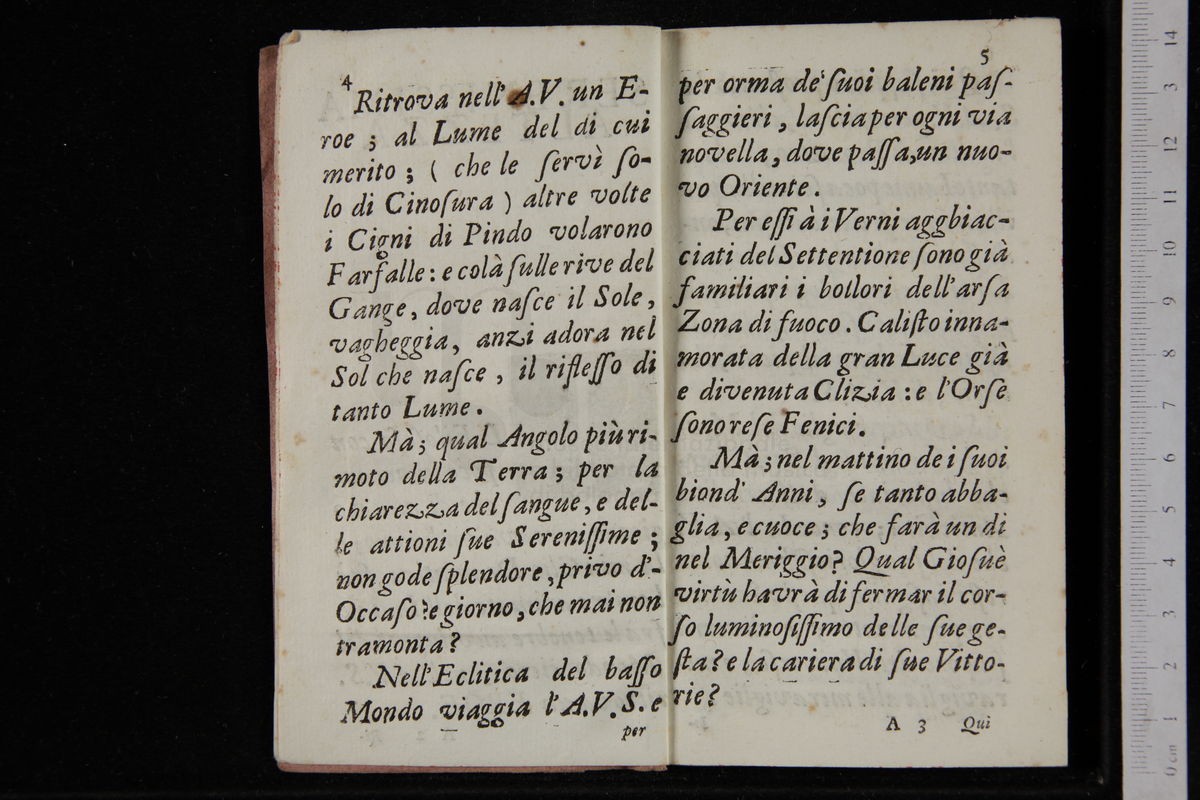 4
Ritrova nell' A.V. un E-
roe ; al Lume del di cui
merito ; ( che le ſervì ſo-
lo di Cinoſura ) altre volte
i Cigni di Pindo volarono
Farfalle : e colà ſulle rive del
Gange, dove naſce il Sole,
vagheggia, anzi adora nel
Sol che naſce , il rifleſſo di
tanto Lume .
Mà ; qual Angolo più ri-
moto della Terra ; per la
chiarezza del ſangue, e del-
le attioni ſue Sereniſſime ;
non gode ſplendore, privo d'-
Occaſo ? e giorno, che mai non
tramonta ?
Nell' Eclitica del baſſo
Mondo viaggia l'A.V.S. e
per
5
per orma de' ſuoi baleni paſ-
ſaggieri , laſcia per ogni via
novella, dove paſſa, un nuo-
vo Oriente .
Per eſſi à i Verni agghiac-
ciati del Settentione ſono già
familiari i bollori dell' arſa
Zona di fuoco . Caliſto inna-
morata della gran Luce già
e divenuta Clizia : e l'Orſe
ſono reſe Fenici .
Mà ; nel mattino de i ſuoi
biond' Anni, ſe tanto abba-
glia, e cuoce ; che farà un di
nel Meriggio ? Qual Gioſuè
virtù havrà di fermar il cor-
ſo luminoſiſſimo delle ſue ge-
ſta ? e la cariera di ſue Vitto-
rie ?
A 3 Qui
0 cm 1 2 3 4 5 6 7 8 9 10 11 12 3 14